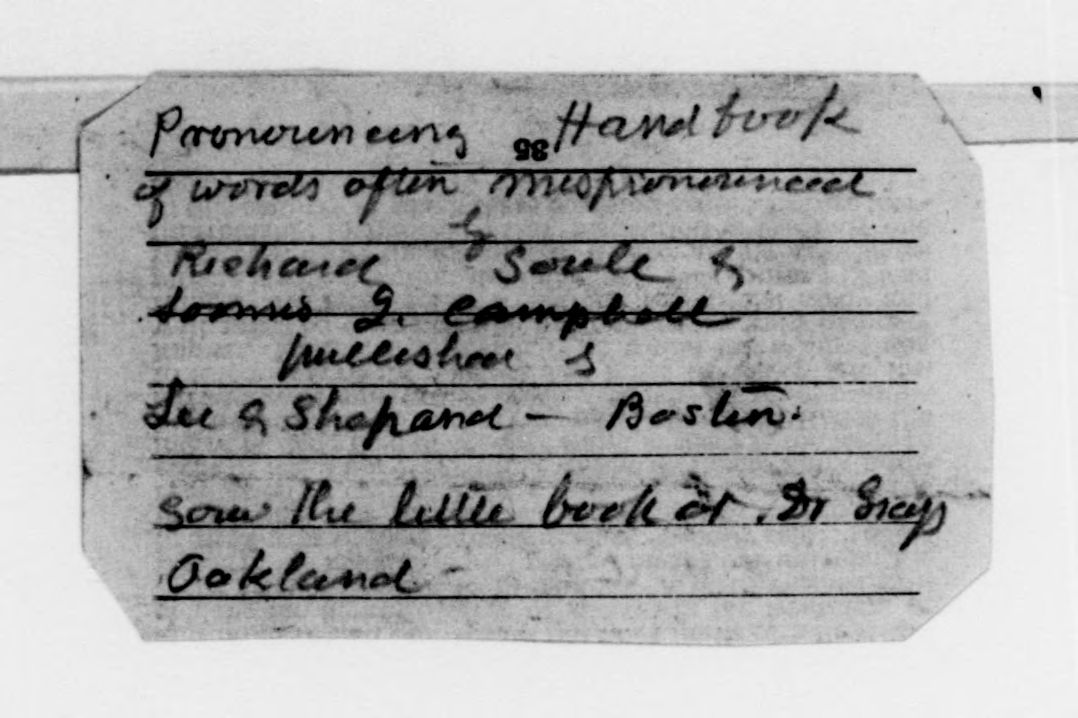 Pronouncing Handbook
85
of words often mispronounced
by
Richard Soule &
Loomis J. Campbell
published by
Lee & Shepard — Boston.
Saw the little book at Dr Grays
Oakland —